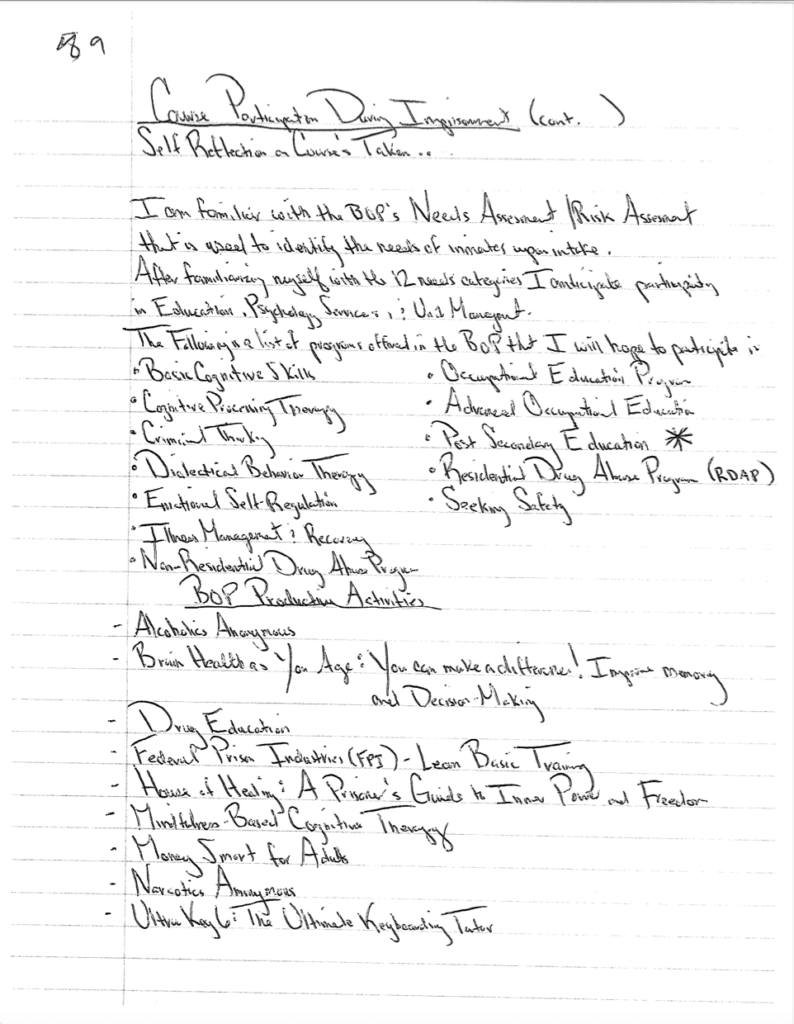 89
Course Participation During Imprisonment (cont. )
Self Reflection on Course's Taken...
I am familiar with the BOP's Needs Assesment / Risk Assesment
that is used to identify the needs of inmates upon intake.
After familiarizing myself with the 12 needs categories I anticipate participating
in Education, Psychology Services, & Unit Managment.
The Following is a list of programs offered in the BOP that I will hope to participate in
• Basic Cognitive Skills
• Cognitive Processing Therapy
• Criminal Thinking
• Dialectical Behavior Therapy
• Emotional Self-Regulation
• Illness Management & Recovery
• Non-Residential Drug Abuse Program
• Occupational Education Program
• Advanced Occupational Education
• Post Secondary Education *
• Residential Drug Abuse Program (RDAP)
• Seeking Safety
BOP Productive Activities
- Alcoholics Anonymous
- Brain Health as You Age: You can make a difference! Improve memory
and Decision-Making
- Drug Education
- Federal Prison Industries (FPI) - Lean Basic Training
- House of Healing: A Prisoner's Guide to Inner Power and Freedom
- Mindfulness-Based Cognitive Therapy
- Money Smart for Adults
- Narcotics Anonymous
- Ultra Key 6: The Ultimate Keyboarding Tutor